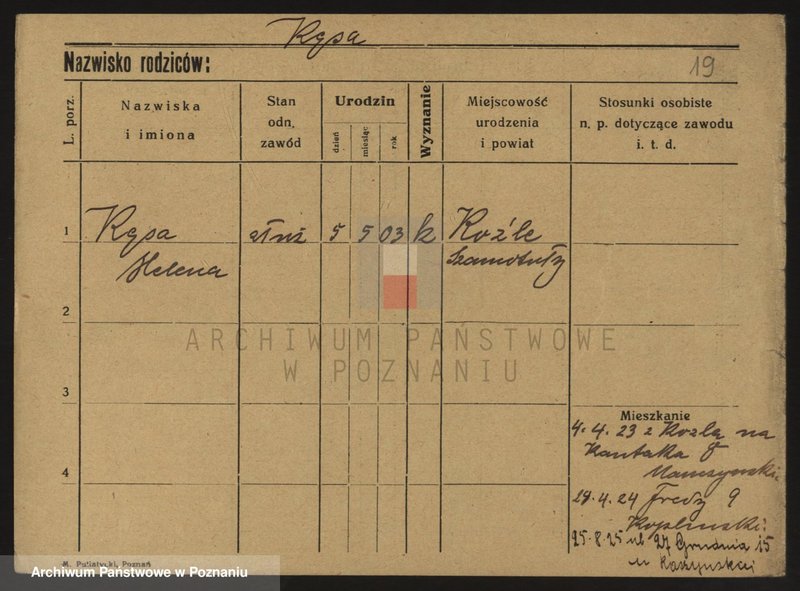 Kęsa
Nazwisko rodziców:
19
L. porz.
Nazwiska
i imiona
Stan
odn.
zawód
Urodzin
dzień
miesiąc
rok
Wyznanie
Miejscowość
urodzenia
i powiat
Stosunki osobiste
n. p. dotyczące zawodu
i. t. d.
1 Kęsa 5 5 03 k Koźle
Helena Szamotuły
2
ARCHIWUM PAŃSTWOWE
W POZNANIU
3
Mieszkanie
4. 4. 23 z Kozla na
Kantaka 8
4
28.4.24 Fredy 9
25.8.25 ul 27 Grudnia 15
M. Putiatycki, Poznań
Archiwum Państwowe w Poznaniu